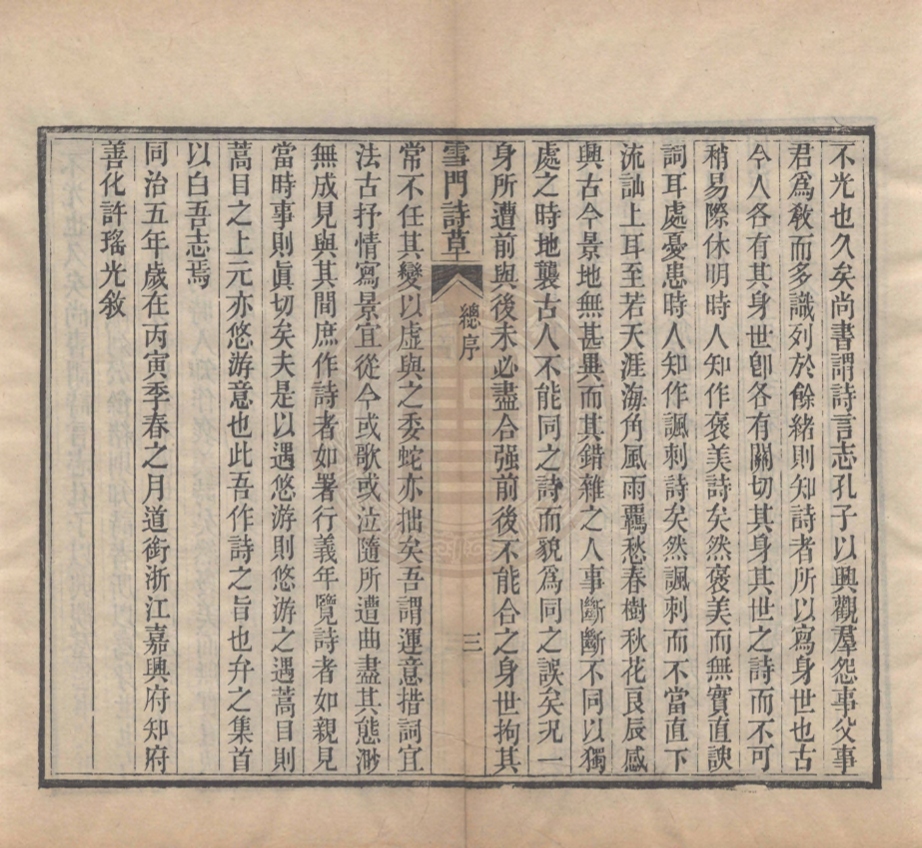 不光也久矣尚書謂詩言志孔子以興觀羣怨事父事
君爲敎而多識列於餘緒則知詩者所以寫身世也古
今人各有其身世卽各有關切其身其世之詩而不可
稍易際休明時人知作褒美詩矣然褒美而無實直諛
詞耳處憂患時人知作諷刺詩矣然諷刺而不當直下
流訕上耳至若天涯海角風雨羈愁春樹秋花良辰感
興古今景地無甚異而其錯雜之人事斷斷不同以獨
處之時地襲古人不能同之詩而貌爲同之誤矣況一
身所遭前與後未必盡合强前後不能合之身世拘其
雪門詩草 總序 三
常不任其變以虛與之委蛇亦拙矣吾謂運意措詞宜
法古抒情寫景宜從今或歌或泣隨所遭曲盡其態渺
無成見與其間庶作詩者如署行義年覽詩者如親見
當時事則眞切矣夫是以遇悠游則悠游之遇蒿目則
蒿目之上元亦悠游意也此吾作詩之旨也弁之集首
以白吾志焉
同治五年歲在丙寅季春之月道銜浙江嘉興府知府
善化許瑤光敘